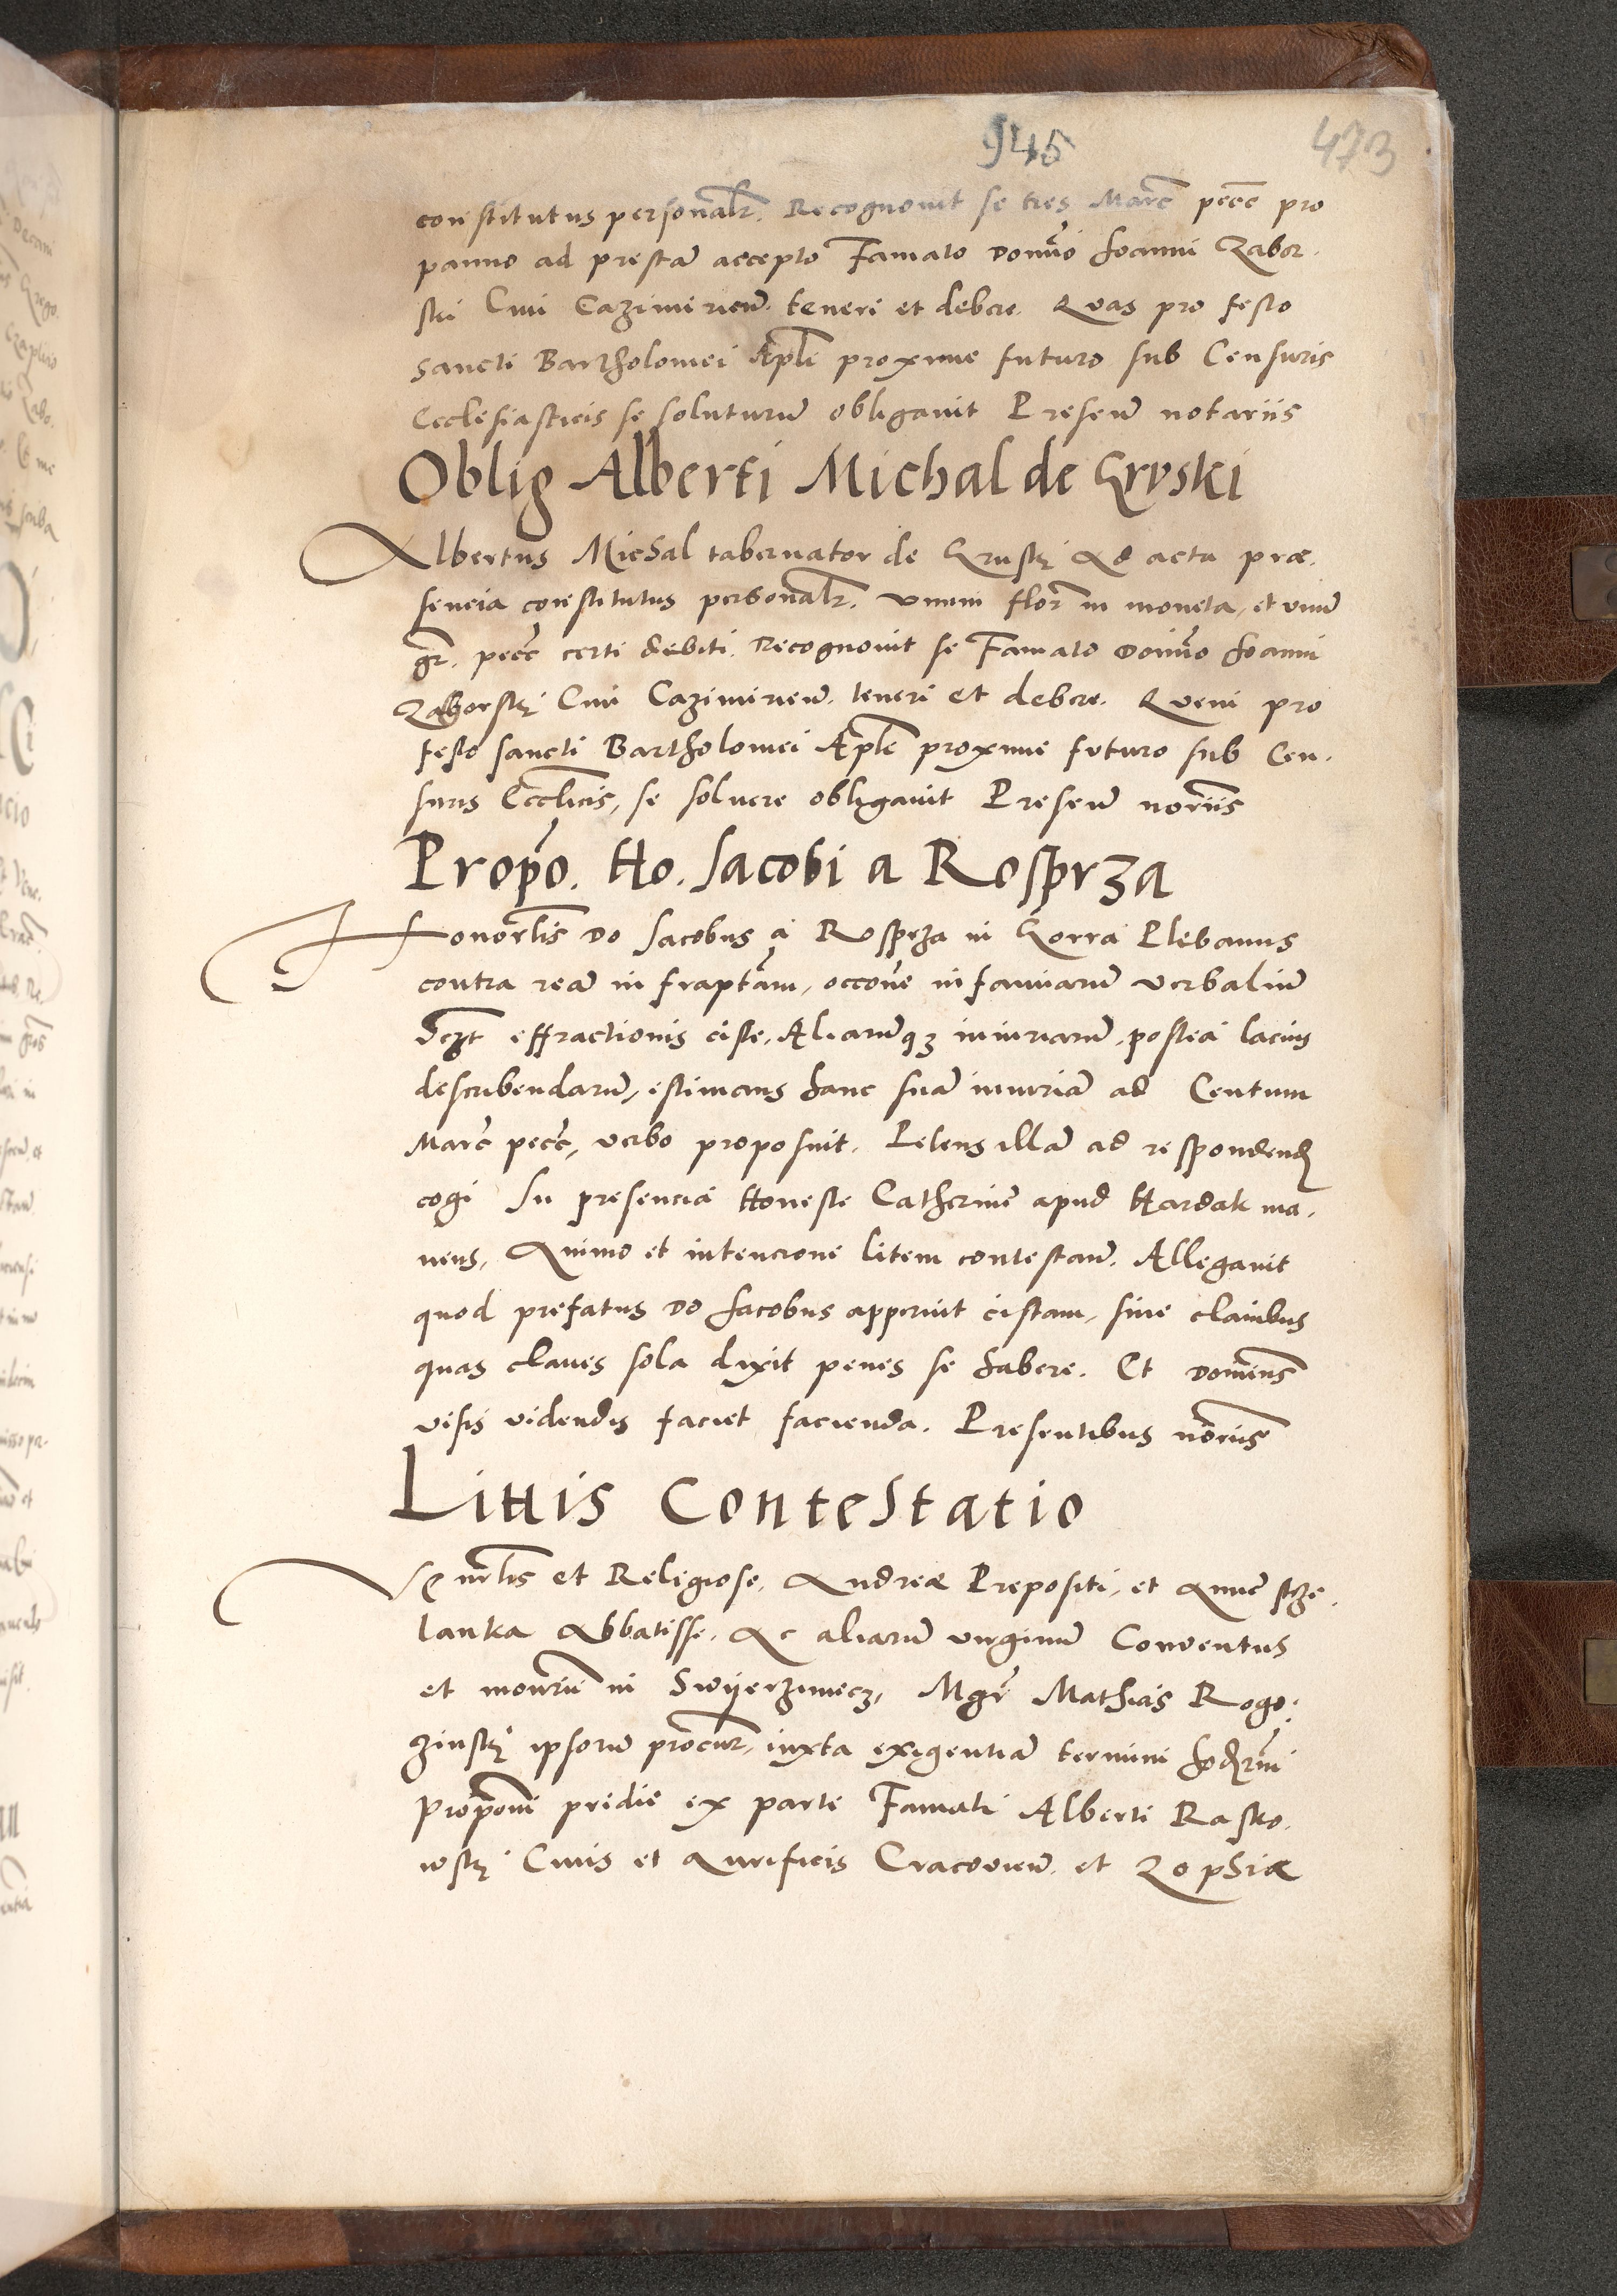 945
473
constitutus personalr. Recognovit se tres Marc pecc pro
panno ad prestam accepto Famato Domino Joanni Zabor.
ski Civi Cazimirien. teneri et debere. Quas pro festo
Sancti Bartholomei Apli proxime futuro sub Censuris
Ecclesiasticis se soluturum obligavit Presen notariis
Oblig Alberti Michal de Gruski
Albertus Michal tabernator de Gruski Ad acta præ.
sencia constitutus personalr. unum flor in moneta, et unum
gr. pecc certi debiti. Recognovit se Famato Domino Joanni
Zaborski Civi Cazimirien. teneri et debere. Quem pro
festo sancti Bartholomei Apli proxime futuro sub Cen.
suris Ecclicis, se solvere obligavit Presen noriis
Propo. Ho. Jacobi a Rosprza
Honorlis Do Jacobus a Rosprza in Gorra Plebanus
contra ream infraptam, occone infamiarum verbalium
Sczt effractionis ciste, Aliarumq3 iniuriarum, postea lacius
describendarum, estimans hanc suam iniuriam ad Centum
Marc pecc, verbo proposuit. Petens illam ad respondend
cogi In presencia Honeste Catherine apud Hardak ma.
nens, Animo et intencione litem contestan. Allegavit
quod prefatus Do Jacobus apperuit cistam, sine clavibus
quas claves sola dixit penes se habere. Et Dominus
visis videndis faciet facienda. Presentibus noriis
Littis Contestatio
Venerlis et Religiose, Andreæ Prepositi, et Anne strze.
lanka Abbatisse, Ac aliarum virginum Conventus
et monrii in Swyerzinecz, Mgr Mathias Rogo.
zinski ipsorum procur, iuxta exigentiam termini hodierni
Proponi pridie ex parte Famati Alberti Rasko.
wski Civis et Aurificis Cracovien. et Zophiæ